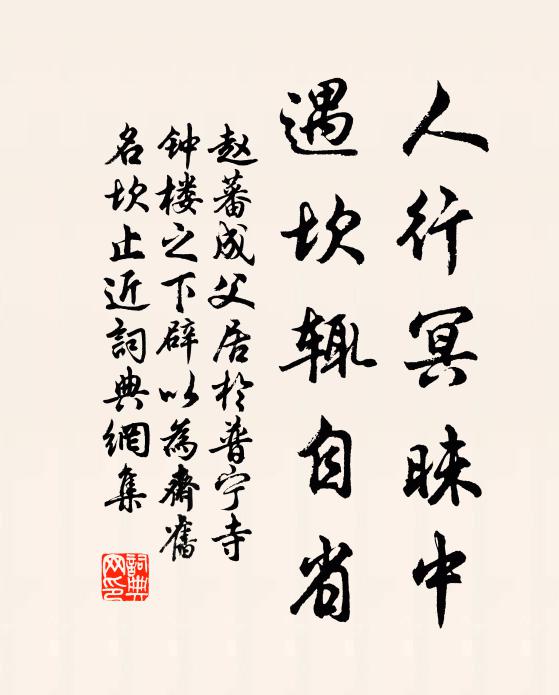 人行冥昧中
遇坎辄自省
赵蕃成父居於普宁寺
钟楼之下辟以為齋舊
名坎止近詞典網集
詞典网印